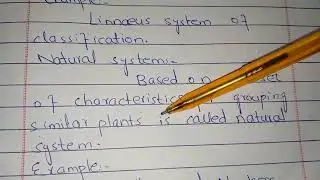 Example:-
Linnaeus system of
classification.
Natural system:-
Based on
of characteristics grouping
similar plants is called natural
system:-
Example:-